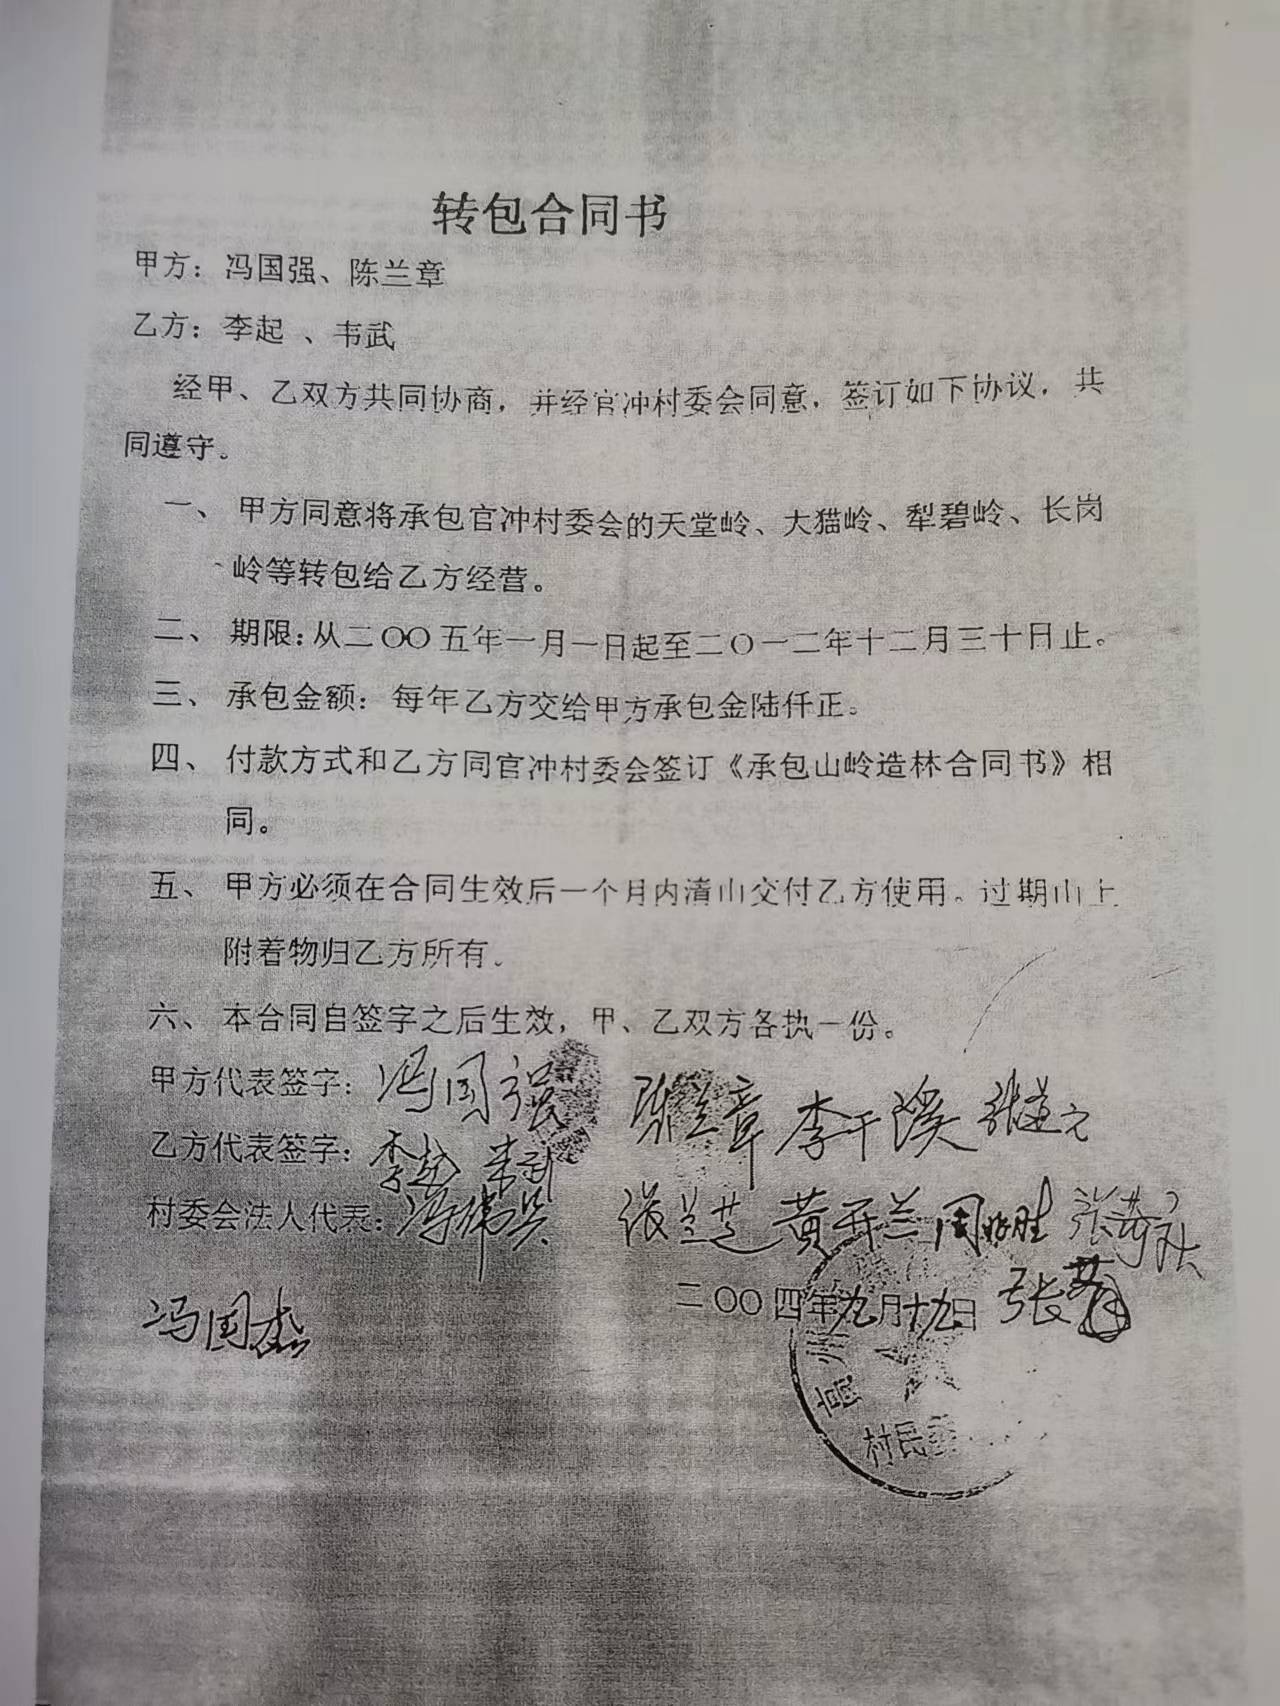 转包合同书
甲方：冯国强、陈兰章
乙方：李起 、韦武
经甲、乙双方共同协商，并经官冲村委会同意，签订如下协议，共
同遵守。
一、 甲方同意将承包官冲村委会的天堂岭、大猫岭、犁碧岭、长岗
岭等转包给乙方经营。
二、 期限：从二〇〇五年一月一日起至二〇一二年十二月三十日止。
三、 承包金额：每年乙方交给甲方承包金陆仟正。
四、 付款方式和乙方同官冲村委会签订《承包山岭造林合同书》相
同。
五、 甲方必须在合同生效后一个月内清山交付乙方使用。过期山上
附着物归乙方所有。
六、 本合同自签字之后生效，甲、乙双方各执一份。
甲方代表签字：冯国强 陈兰章 李千溪
乙方代表签字：李起 韦武
村委会法人代表： 张兰芝 黄开兰
二〇〇四年九月十九日
冯国杰
村民委